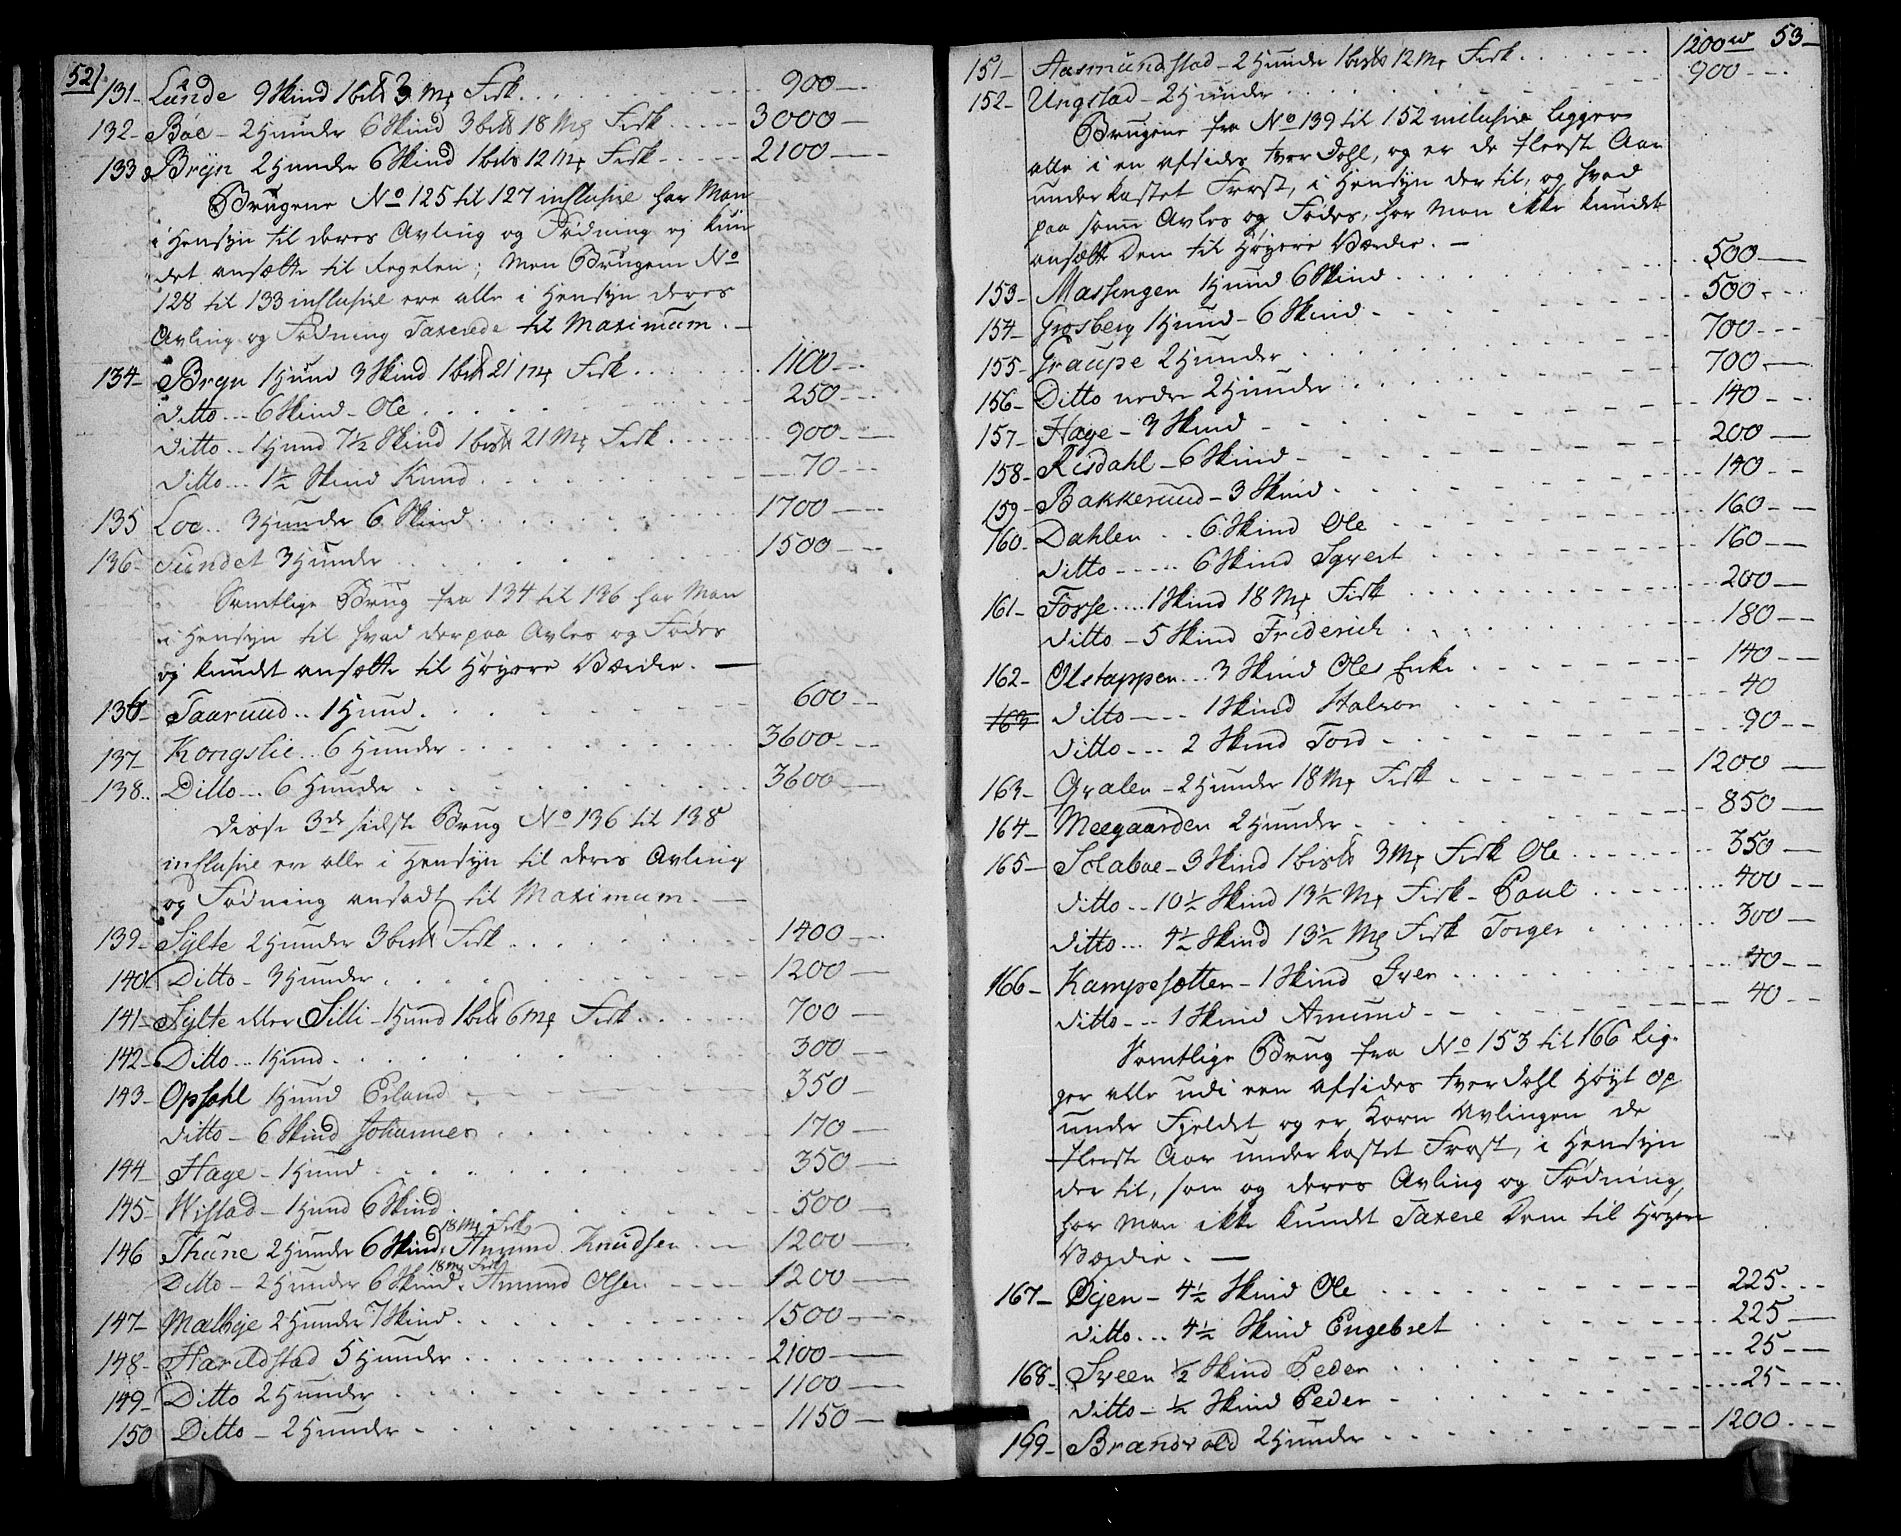 52
131- Lunde 9 Skind 1 bis℔ 3 Mk Fisk . . . 900 —
132- Böe - 2 Hunder 6 Skind 3 bis℔ 18 Mk Fisk . . . 3000 —
133 Bryn 2 Hunder 6 Skind 1 bis℔ 12 Mk Fisk . . . 2100 —
Brugene No 125 til 127 inclusive har Man
i Hensyn til deres Avling og Fødning ej kun
det ansætte til Regelen; Men Brugene No
128 til 133 inclusive ere alle i Hensyn deres
Avling og Fødning Taxerede til Maximum. —
134- Bryn 1 Hund 3 Skind 1 bis℔ 21 Mk Fisk . . . 1100 —
Ditto... 6 Skind - Ole . . . 250 —
Ditto.. 1 Hund 7½ Skind 1 bis℔ 21 Mk Fisk . . . 900 —
Ditto... 1½ Skind Knud . . . 70 —
135 Loe.. 3 Hunder 6 Skind . . . 1700 —
136- Sundet 3 Hunder . . . 1500 —
Samtlige Brug fra 134 til 136 har Man
i Hensyn til hvad derpaa Avles og Fødes
ej kundet ansætte til Høyere Værdie. —
136- Taarud.. 1 Hund . . . 600 —
137- Kongslie.. 6 Hunder . . . 3600 —
138.. Ditto... 6 Hunder . . . 3600 —
Disse 3de sidste Brug No 136 til 138
inclusive er alle i Hensyn til deres Avling
og Fødning ansadt til Maximum. —
139- Sylte 2 Hunder 3 bis℔ Fisk . . . 1400 —
140 Ditto - 3 Hunder . . . 1200 —
141- Sylte eller Silli - 1 Hund 1 bis℔ 6 Mk Fisk . . . 700 —
142- Ditto... 1 Hund . . . 300 —
143- Opsahl 1 Hund Erland . . . 350 —
Ditto - 6 Skind Johannes . . . 170 —
144- Hage - 1 Hund . . . 350 —
145- Wistad - 1 Hund 6 Skind . . . 500 —
18 Mk Fisk
146 Thune 2 Hunder 6 Skind, Amund Knudsen . . . 1200 —
18 Mk Fisk
Ditto - 2 Hunder 6 Skind. Amund Olsen . . . 1200 —
147- Mælheje 2 Hunder 7 Skind . . . 1500 —
148- Harildstad 5 Hunder . . . 2100 —
149- Ditto 2 Hunder . . . 1100 —
150 Ditto - 2 Hunder . . . 1150 —
53-
151- Aasmundstad - 2 Hunder 1 bis℔ 12 Mk Fisk . . . 1200
152- Ungstad - 2 Hunder . . . 900 —
Brugene fra No 139 til 152 inclusive ligger
alle i en afsides tverdahl, og er de fleste Aar
underkastet Frost, i Hensyn der til, og hvad
paa samme Avles og Fødes, har Man ikke kundet
ansætte Dem til Høyere Værdie. —
153- Massingen 1 Hund 6 Skind . . . 500 —
154- Grosberg 1 Hund - 6 Skind . . . 500 —
155- Graupe 2 Hunder . . . 700 —
156- Ditto nedre 2 Hunder . . . 700 —
157- Hage - 3 Skind . . . 140 —
158- Risdahl - 6 Skind . . . 200 —
159- Bakkerud - 3 Skind . . . 140 —
160- Dahlen .. 6 Skind Ole . . . 160 —
Ditto ..... 6 Skind Syvert . . . 160 —
161- Fosse .... 1 Skind 18 Mk Fisk . . . 200 —
Ditto - 5 Skind Friderich . . . 180 —
162- Olstappen ... 3 Skind Oles Enke . . . 140 —
163 Ditto — 1 Skind Halvor . . . 40
Ditto ... 2 Skind Tord . . . 90 —
163- Qvalen - 2 Hunder 18 Mk Fisk . . . 1200 —
164- Meegaarden 2 Hunder . . . 850 —
165- Solaboe - 3 Skind 1 bis℔ 3 Mk Fisk Ole . . . 350 —
Ditto .. 10½ Skind 13½ Mk Fisk - Poul . . . 400 —
Ditto ... 4½ Skind 13½ Mk Fisk Torger . . . 300 —
166- Kampesætter - 1 Skind Iver . . . 40 —
Ditto ... 1 Skind Amund . . . 40 —
Samtlige Brug fra No 153 til 166 lig-
ger alle udi een afsides tverdahl Høyt op
under Fjeldet og er Korn Avlingen de
fleste Aar underkastet Frost, i Hensyn
der til, som og deres Avling og Fødning,
har Man ikke kundet Taxere Dem til Høyere
Værdie. —
167- Öyen - 4½ Skind Ole . . . 225 —
Ditto ... 4½ Skind Engebret . . . 225 —
168- Sveen ½ Skind Peder . . . 25 —
Ditto - ½ Skind Peder . . . 25 —
169- Brandvold 2 Hunder . . . 1200 —